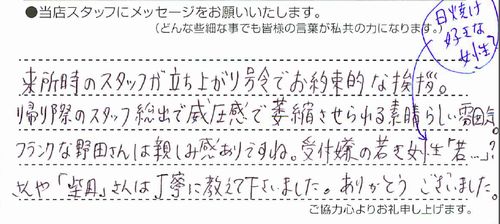 ●当店スタッフにメッセージをお願いいたします。
(どんな些細な事でも皆様の言葉が私共の力になります。)
日焼け
好きな
女性?
来所時のスタッフが立ち上がり号令でお約束的な挨拶。
帰り際のスタッフ総出で威圧感で萎縮させられる素晴らしい雰囲気。
フランクな野田さんは親しみ感ありですね。受付嬢の若き女性「若…」?
さんは丁寧に教えて下さいました。ありがとうございました。
ご協力心よりお礼申し上げます。